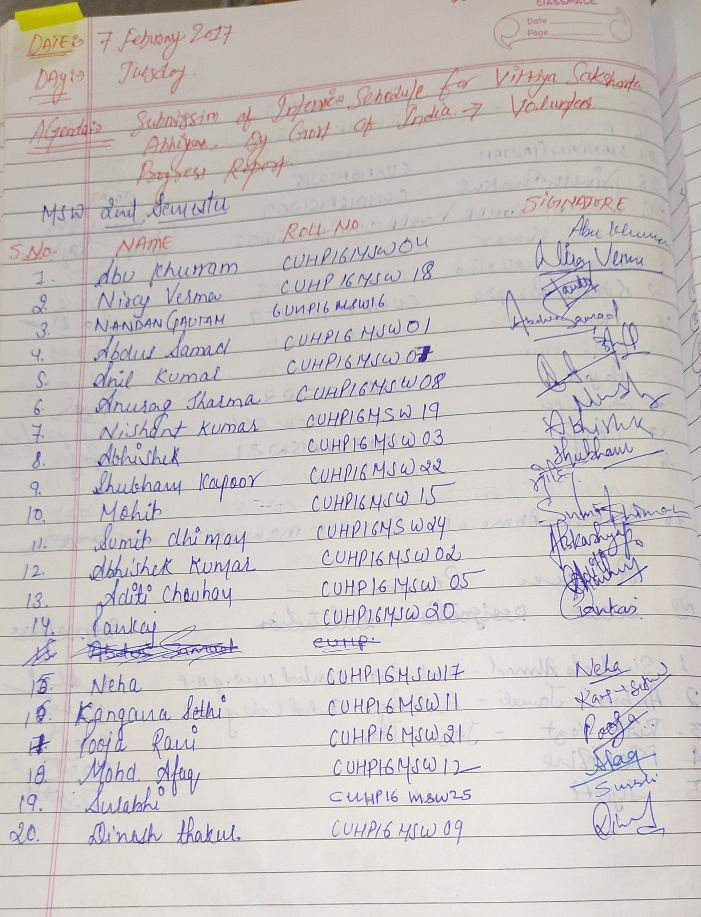 CLASSMATE
Date
Page
DATE:⇒ 7 February 2017
DAY:⇒ Tuesday.
AGenda:⇒ Submission of Interview Schedule for Vittiya Saksharta
Abhiyan. By Govt of India → Volunteer
Progress Report
MSW 2nd Semester
S.No. NAME ROLL NO. SIGNATURE
1. Abu Khurram CUHP16MSW04 Abu Khurram
2. Niraj Verma CUHP16MSW18 Niraj Verma
3. NANDAN GAUTAM CUHP16MSW16
4. Abdus Samad CUHP16MSW01 Abdus Samad
5. Anil Kumar CUHP16MSW07
6. Anurag Sharma CUHP16MSW08
7. Nishant Kumar CUHP16MSW19 Nishant
8. Abhishek CUHP16MSW03 Abhishek
9. Shubham Kapoor CUHP16MSW22 Shubham
10. Mohit CUHP16MSW15 मोहित
11. Sumit dhiman CUHP16MSW24 Sumit Dhiman
12. Abhishek Kumar CUHP16MSW02 Abkashyap
13. Aditi Chauhan CUHP16MSW05
14. Pankaj CUHP16MSW20 Pankaj
15 Abdus Samad CUHP.
15. Neha CUHP16MSW17 Neha
16. Kangana Sethi CUHP16MSW11
17 Pooja Rani CUHP16MSW21 Pooja
18. Mohd. Afaq CUHP16MSW12 Afaq
19. Surabhi CUHP16MSW25 Surabhi
20. Dinesh thakur. CUHP16MSW09